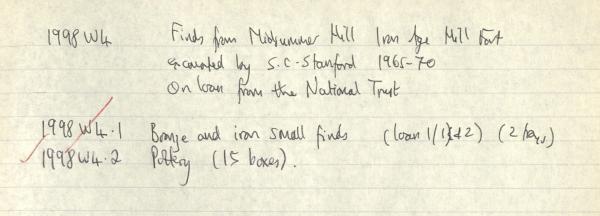 1998 W4 Finds from Midsummer Hill Iron Age Hill Fort
excavated by S.C. Stanford 1965-70
On loan from the National Trust
1998 W4.1 Bronze and iron small finds (loan 1/1&2) (2 boxes)
1998 W4.2 Pottery (15 boxes).